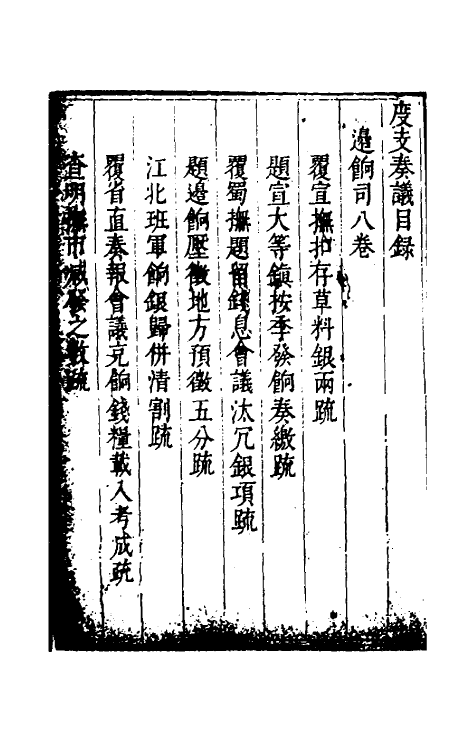 度支奏議目録
邊餉司八卷
覆宣撫扣存草料銀兩疏
題宣大等鎮按季發餉奏繳疏
覆蜀撫題留錢息會議汰冗銀項疏
題邊餉壓徵地方預徵五分疏
江北班軍餉銀歸併清割疏
覆省直奏報會議充餉錢糧載入考成疏
查明撫市減發之數疏